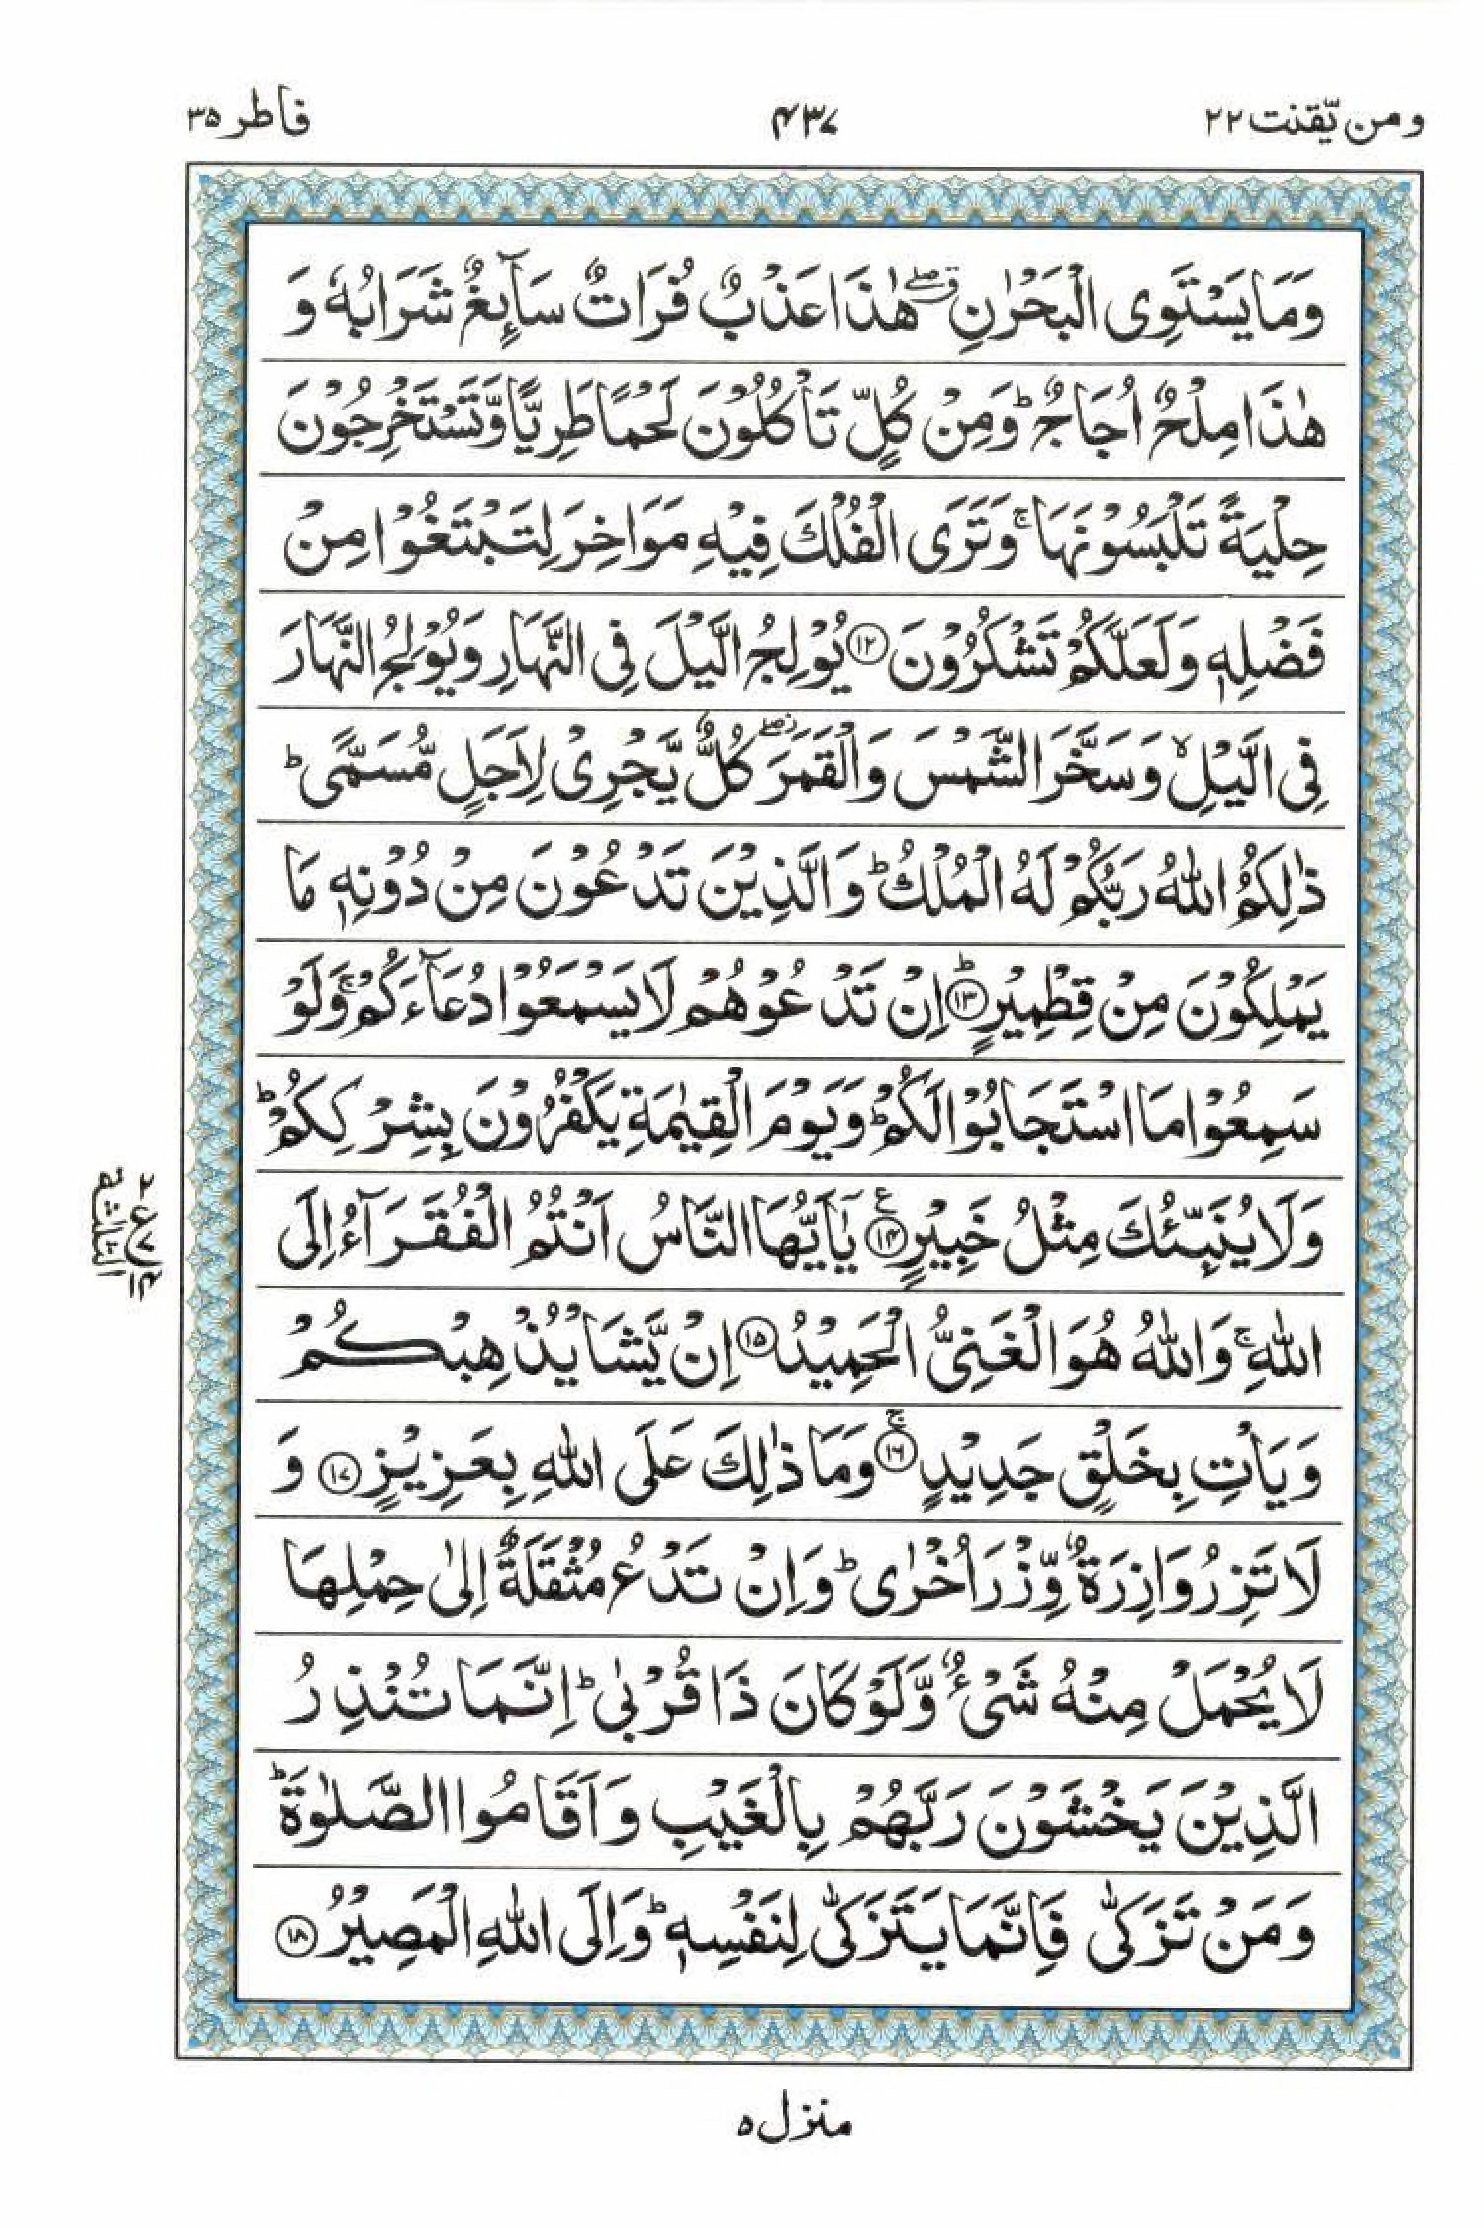 ومن يّقنت ٢٢
٤٣٧
فاطر ٣٥
وَمَا يَسْتَوِى الْبَحْرٰنِ ۖۗ هٰذَا عَذْبٌ فُرَاتٌ سَآئِغٌ شَرَابُهٗ وَ
هٰذَا مِلْحٌ اُجَاجٌ ؕ وَمِنْ كُلٍّ تَاْكُلُوْنَ لَحْمًا طَرِيًّا وَّتَسْتَخْرِجُوْنَ
حِلْيَةً تَلْبَسُوْنَهَا ۚ وَتَرَى الْفُلْكَ فِيْهِ مَوَاخِرَ لِتَبْتَغُوْا مِنْ
فَضْلِهٖ وَلَعَلَّكُمْ تَشْكُرُوْنَ ﴿١٢﴾ يُوْلِجُ الَّيْلَ فِى النَّهَارِ وَيُوْلِجُ النَّهَارَ
فِى الَّيْلِ ۙ وَسَخَّرَ الشَّمْسَ وَالْقَمَرَ ۖ كُلٌّ يَّجْرِىْ لِاَجَلٍ مُّسَمًّى ؕ
ذٰلِكُمُ اللّٰهُ رَبُّكُمْ لَهُ الْمُلْكُ ؕ وَالَّذِيْنَ تَدْعُوْنَ مِنْ دُوْنِهٖ مَا
يَمْلِكُوْنَ مِنْ قِطْمِيْرٍ ؕ ﴿١٣﴾ اِنْ تَدْعُوْهُمْ لَا يَسْمَعُوْا دُعَآءَكُمْ ۚ وَلَوْ
سَمِعُوْا مَا اسْتَجَابُوْا لَكُمْ ؕ وَيَوْمَ الْقِيٰمَةِ يَكْفُرُوْنَ بِشِرْكِكُمْ ؕ
وَلَا يُنَبِّئُكَ مِثْلُ خَبِيْرٍ ﴿١٤﴾ ع يٰۤاَيُّهَا النَّاسُ اَنْتُمُ الْفُقَرَآءُ اِلَى
اللّٰهِ ۚ وَاللّٰهُ هُوَ الْغَنِىُّ الْحَمِيْدُ ﴿١٥﴾ اِنْ يَّشَاْ يُذْهِبْكُمْ
وَيَاْتِ بِخَلْقٍ جَدِيْدٍ ۚ ﴿١٦﴾ وَمَا ذٰلِكَ عَلَى اللّٰهِ بِعَزِيْزٍ ﴿١٧﴾ وَ
لَا تَزِرُ وَازِرَةٌ وِّزْرَ اُخْرٰى ؕ وَاِنْ تَدْعُ مُثْقَلَةٌ اِلٰى حِمْلِهَا
لَا يُحْمَلْ مِنْهُ شَىْءٌ وَّلَوْ كَانَ ذَا قُرْبٰى ؕ اِنَّمَا تُنْذِرُ
الَّذِيْنَ يَخْشَوْنَ رَبَّهُمْ بِالْغَيْبِ وَاَقَامُوا الصَّلٰوةَ ؕ
وَمَنْ تَزَكّٰى فَاِنَّمَا يَتَزَكّٰى لِنَفْسِهٖ ؕ وَاِلَى اللّٰهِ الْمَصِيْرُ ﴿١٨﴾
٢
ع
٧
١٤
منزل ٥